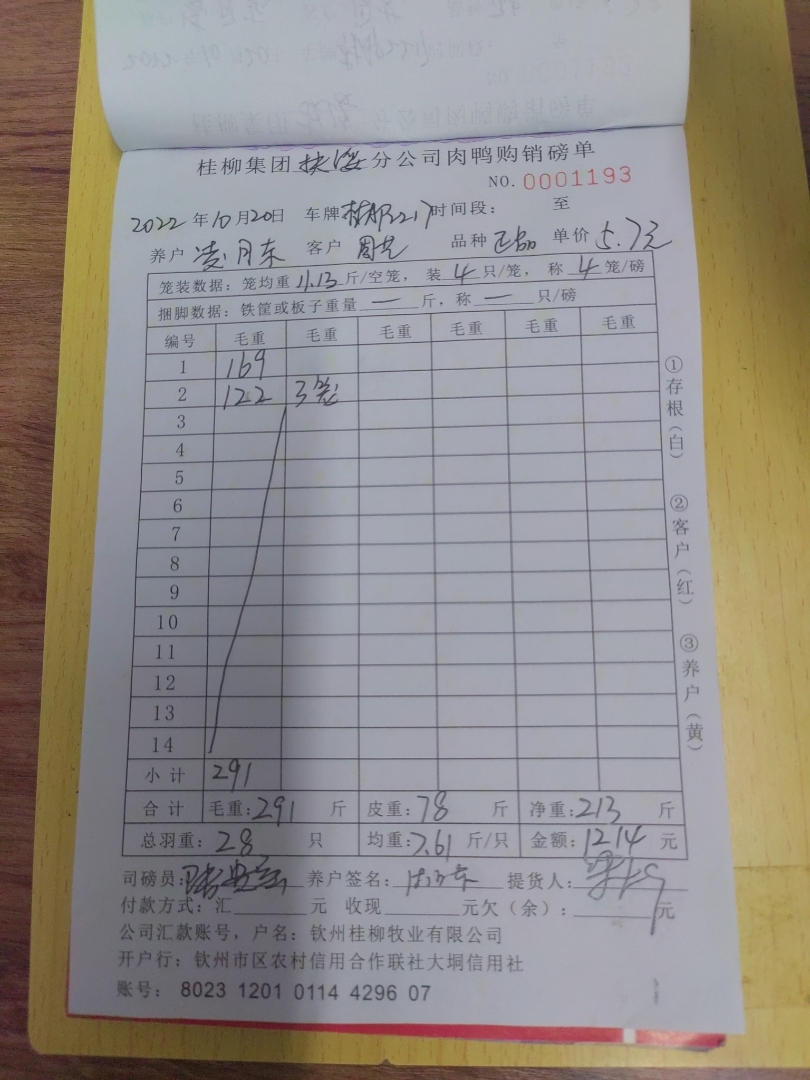 桂柳集团扶绥分公司肉鸭购销磅单
NO. 0001193
2022年10月20日 车牌 217 时间段： 至
养户 凌月东 客户 周艺 品种 正品 单价 5.7元
笼装数据：笼均重 11.13 斤/空笼，装 4 只/笼，称 4 笼/磅
捆脚数据：铁筐或板子重量 — 斤，称 — 只/磅
编号 毛重 毛重 毛重 毛重 毛重 毛重
1 169
2 122 3笼
3
4
5
6
7
8
9
10
11
12
13
14
小计 291
合计 毛重：291 斤 皮重：78 斤 净重：213 斤
总羽重：28 只 均重：7.61 斤/只 金额：1214 元
司磅员： 养户签名： 提货人：
付款方式：汇 元 收现 元欠（余）： 元
公司汇款账号，户名：钦州桂柳牧业有限公司
开户行：钦州市区农村信用合作联社大垌信用社
账号： 8023 1201 0114 4296 07
①存根（白） ②客户（红） ③养户（黄）